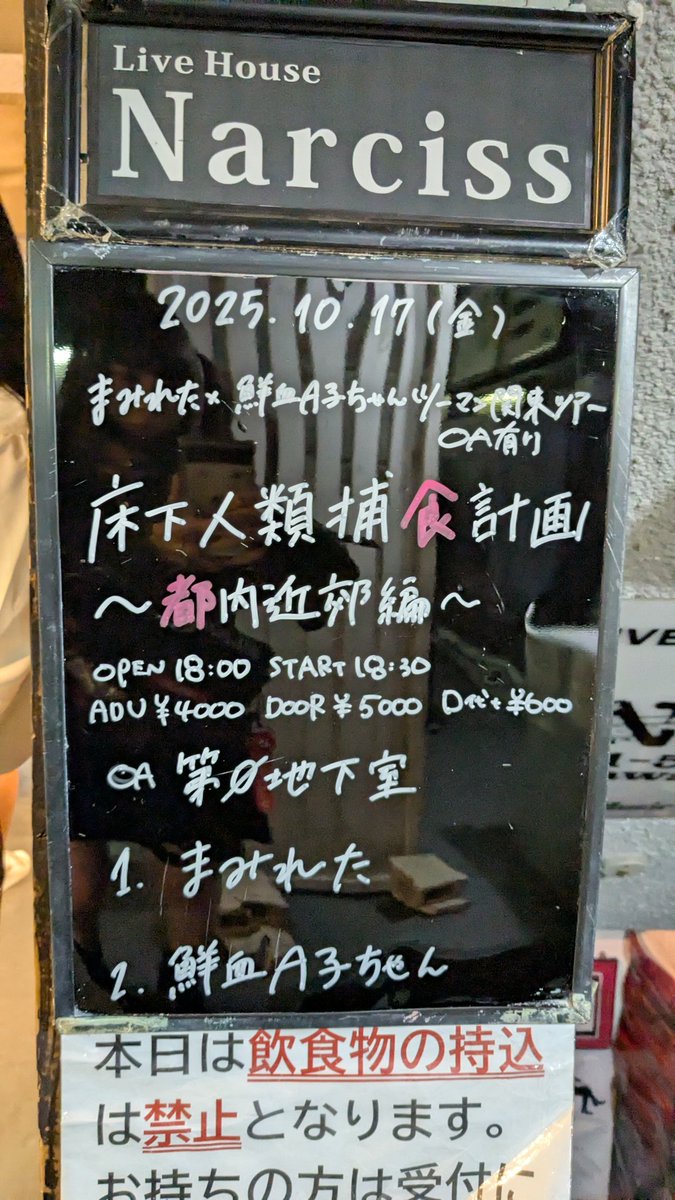 Live House
Narciss
2025.10.17(金)
まみれた×鮮血A子ちゃんツーマン関東ツアー
OA有り
床下人類捕食計画
〜都内近郊編〜
OPEN 18:00 START 18:30
ADV ¥4000 DOOR ¥5000 D代+¥600
OA 第0地下室
1. まみれた
2. 鮮血A子ちゃん
本日は飲食物の持込
は禁止となります。
お持ちの方は受付に